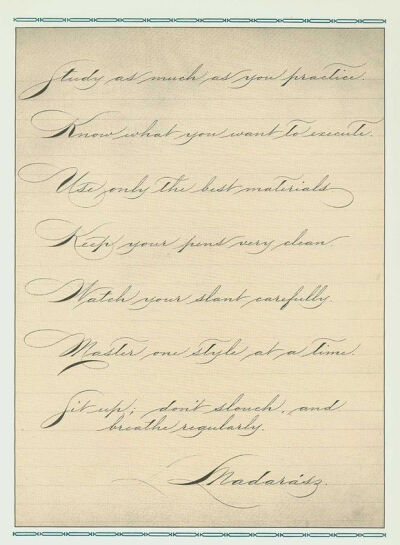 Study as much as you practice.
Know what you want to execute.
Use only the best materials
Keep your pens very clean
Watch your slant carefully.
Master one style at a time.
Sit up; don't slouch, and
breathe regularly.
L Madarász.